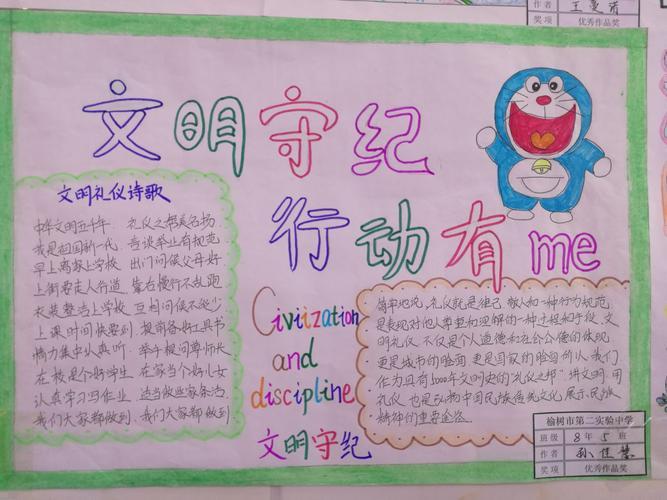 王曼
作者
奖项
优秀作品奖
文明守纪
行动有me
文明礼仪诗歌
中华文明五千年 礼仪之邦美名扬
我是祖国新一代 言谈举止有规范
早上离家上学校 出门问侯父母好
上街要走人行道 靠右慢行不乱跑
衣装整洁上学校 互相问侯不能少
上课时间快要到 提前备好工具书
精力集中认真听 举手提问尊师长
在校是个好学生 在家当个好儿女
认真学习写作业 适当做些家务活
我们大家都做到 我们大家都做到
Civiization
and
discipline
文明守纪
简单地说，礼仪就是律己 敬人的一种行为规范
是表现对他人尊重和理解的一种过程和手段 文
明礼仪 不仅是个人道德和社会公德的体现
更是城市的脸面 更是国家的脸面 所以我们
作为具有5000年文明史的"礼仪之邦" 讲文明 用
礼仪 也是弘扬中国民族传统文化 展示民族
精神的重要途径
榆树市第二实验中学
班级 8年5班
作者 孙佳慧
奖项 优秀作品奖